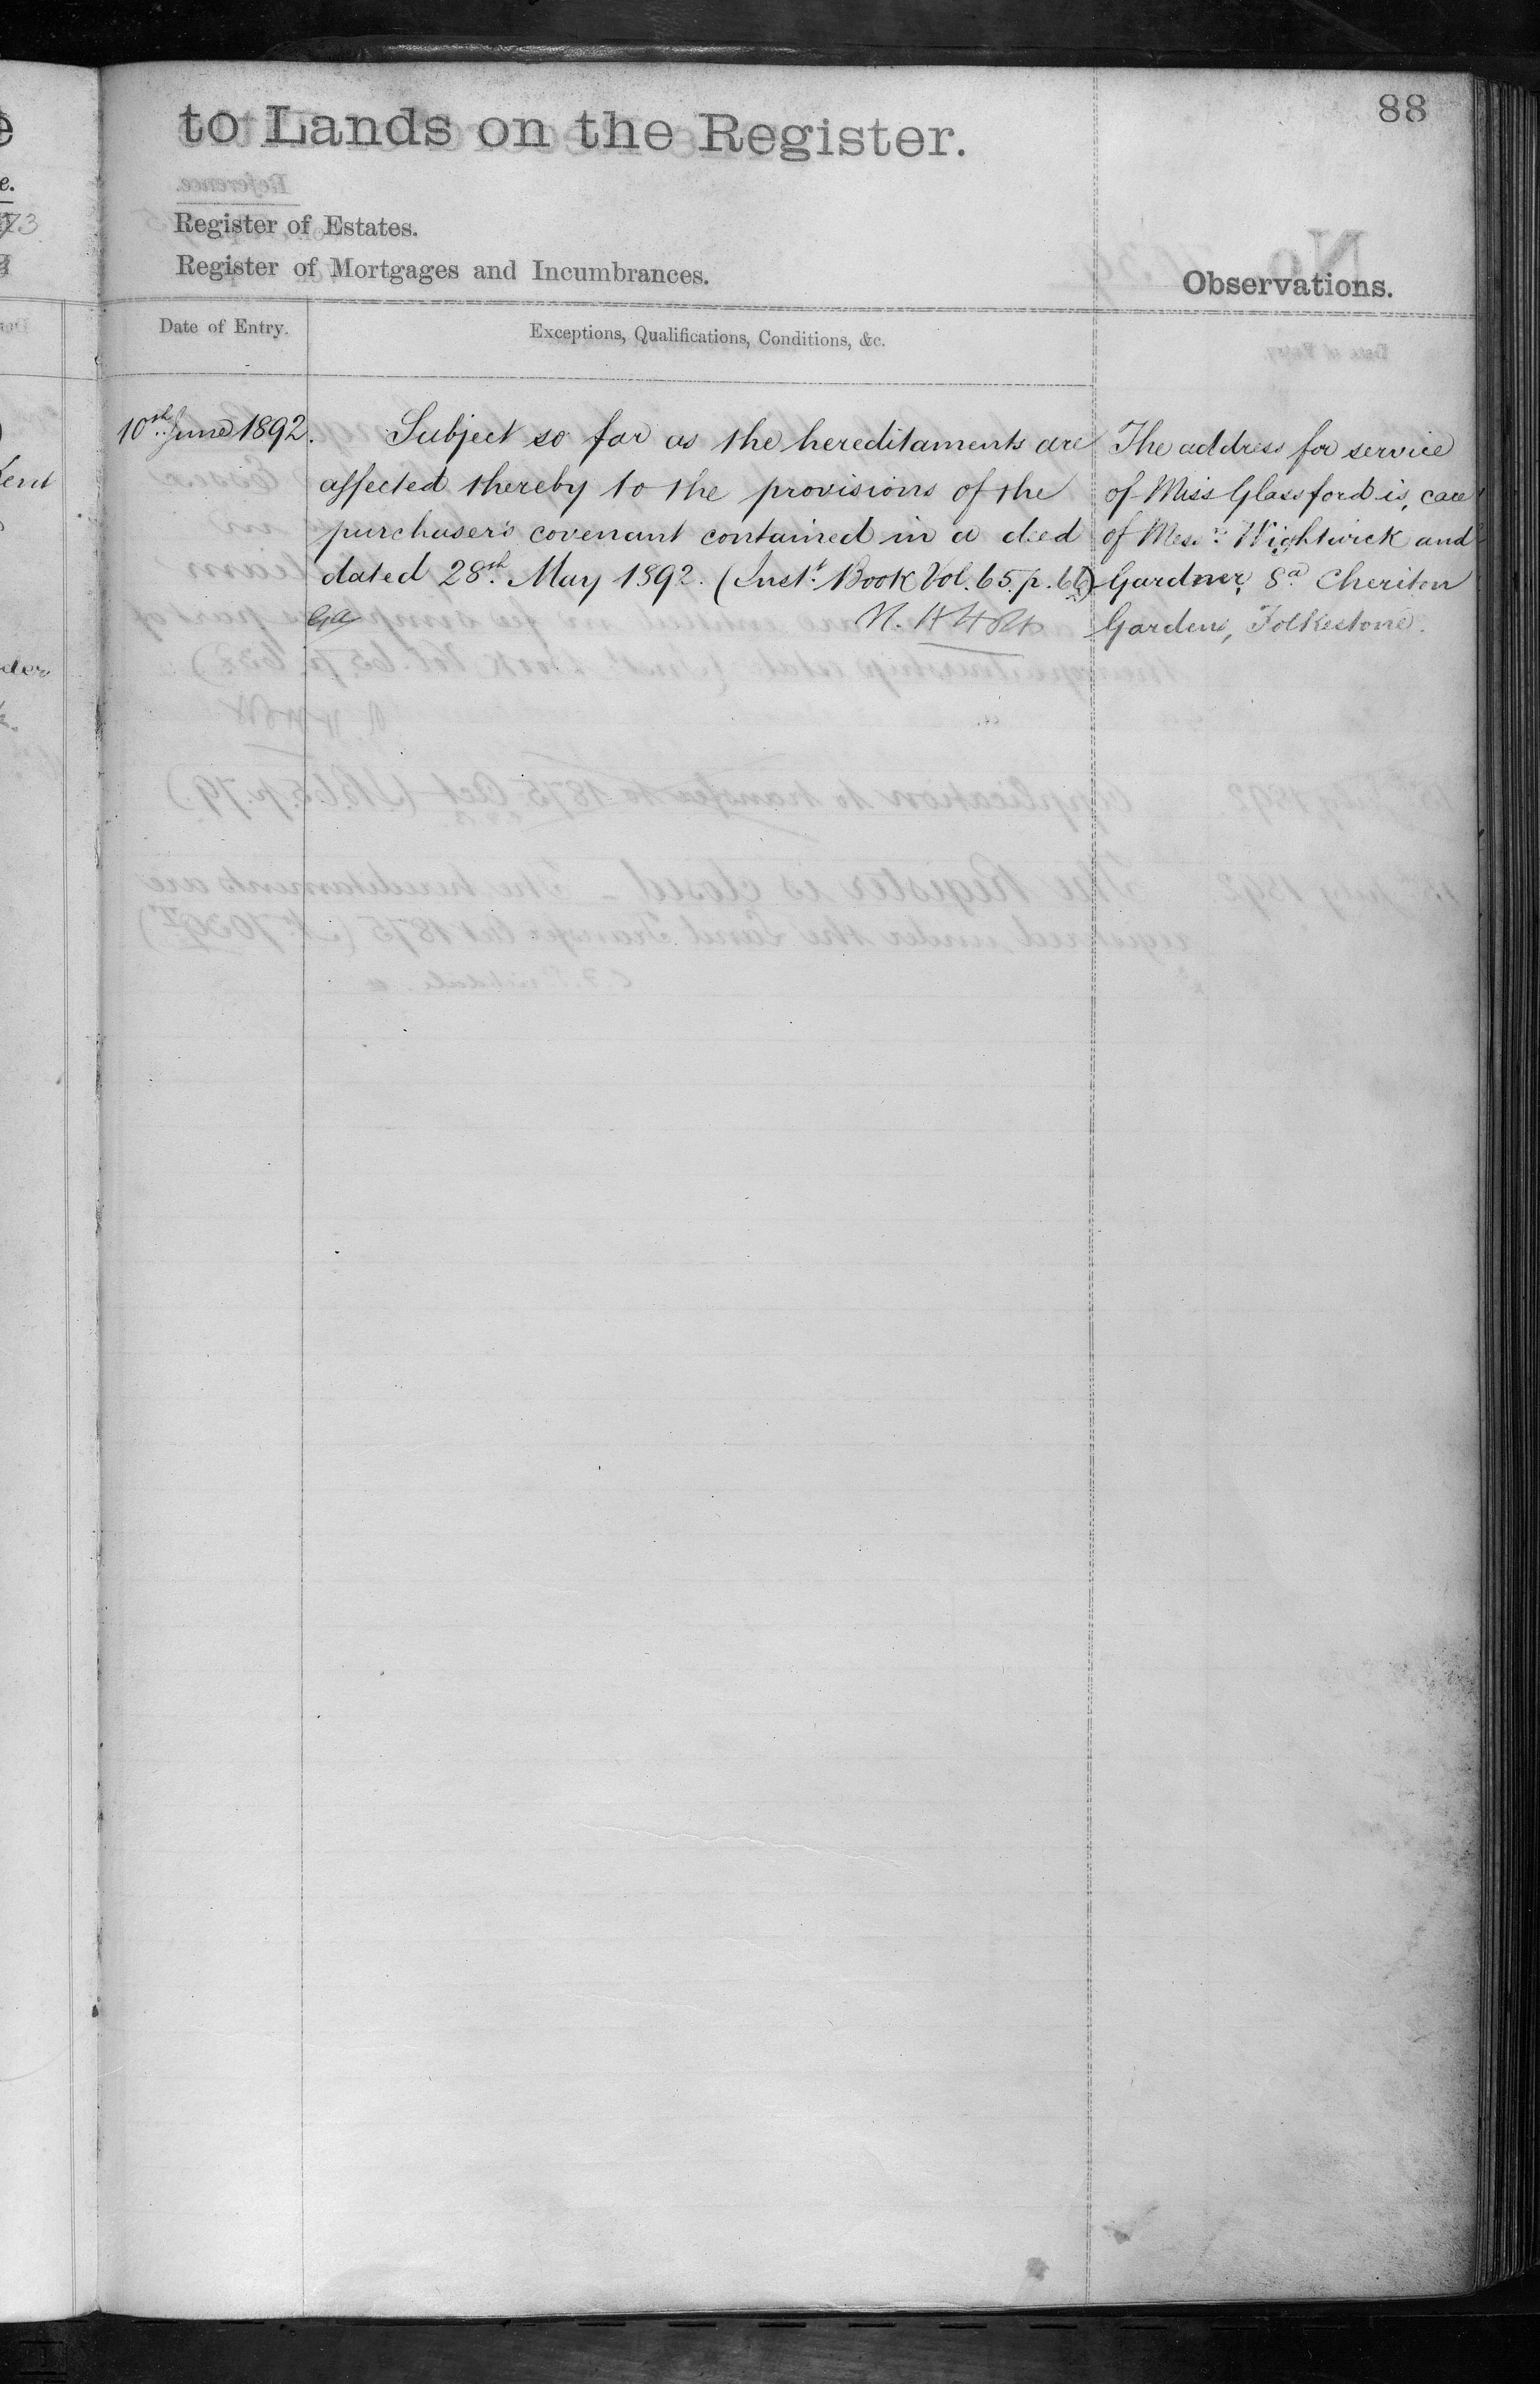 88
to Lands on the Register.
Register of Estates.
Register of Mortgages and Incumbrances.
Observations.
Date of Entry.
Exceptions, Qualifications, Conditions, &c.
10th June 1892.
Subject so far as the hereditaments are
affected thereby to the provisions of the
purchaser's covenant contained in a deed
dated 28th May 1892. (Inst. Book Vol. 65. p. 66)
The address for service
of Miss Glassford is, care
of Messrs Wightwick and
Gardner, 8a Cheriton
Gardens, Folkestone.